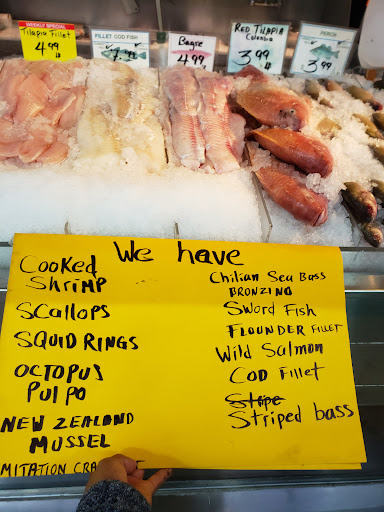 WEEKLY SPECIAL
Tilapia Fillet
4.99 lb
FILLET COD FISH
7.99
Bagre
4.99
Red Tilapia
Colombia
3.99
PERCH
3.99
We have
COOKED
SHRIMP
SCallops
SQUID RINGS
OCTOPUS
Pulpo
NEW ZEALAND
MUSSEL
MITATION CRA
Chilian Sea Bass
BRONZINO
Sword Fish
FLOUNDER FILLET
Wild Salmon
COD Fillet
Stripe
Striped bass